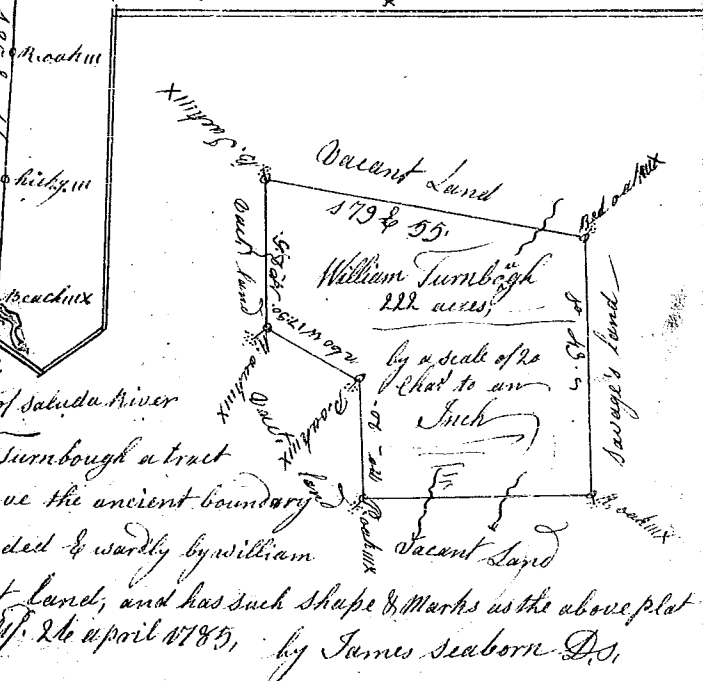 R. oak III
hicky. III
Beach IIIX
Vacant Land
S79 E 55.
Red oak IIIX
William Turnbogh
222 acres,
by a scale of 20
Chas to an
Inch
Savage's Land
Vact land
N60W 17:50.
R. oak IIIX
Vact.
land
R. oak IIIX
R. oak IIIX
Vacant Land
of Saluda River
Turnbough a tract
ve the ancient boundary
ded E wardly by william
t land, and has such shape & Marks as the above plat
26 april 1785, by James Seaborn D.S,